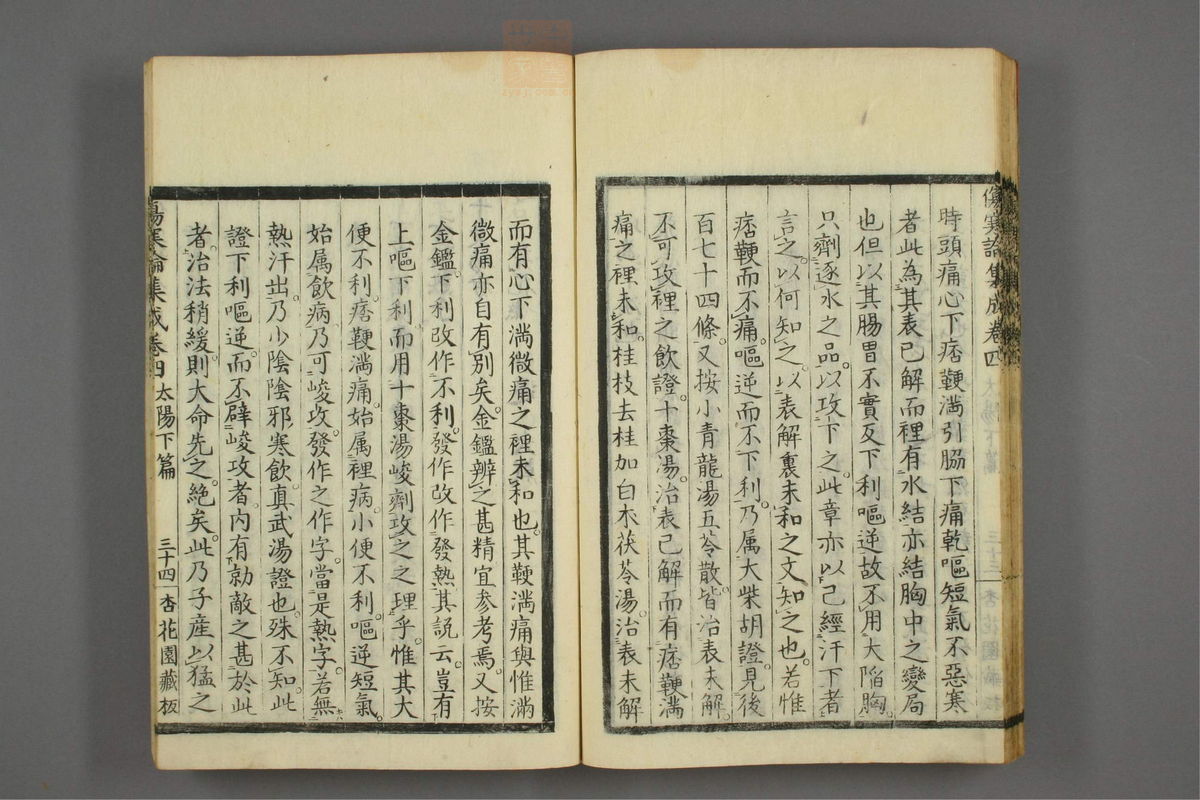 傷寒論集成卷四
時頭痛心下痞鞕滿引脇下痛乾嘔短氣不惡寒
者此為其表已解而裡有水結亦結胸中之變局
也但以其腸胃不實反下利嘔逆故不用大陷胸
只劑逐水之品以攻下之此章亦以已經汗下者
言之以何知之以表解裏未和之文知之也若惟
痞鞕而不痛嘔逆而不下利乃属大柴胡證見後
百七十四條又按小青龍湯五苓散皆治表未解
不可攻裡之飲證十棗湯治表已解而有痞鞕滿
痛之裡未和桂枝去桂加白朮茯苓湯治表未解
而有心下滿微痛之裡未和也其鞕滿痛與惟滿
微痛亦自有別矣金鑑辨之甚精宜参考焉又按
金鑑下利改作不利發作改作發熱其說云豈有
上嘔下利而用十棗湯峻劑攻之之理乎惟其大
便不利痞鞕滿痛始属裡病小便不利嘔逆短氣
始属飲病乃可峻攻發作之作字當是熱字若無
熱汗出乃少陰陰邪寒飲真武湯證也殊不知此
證下利嘔逆而不辟峻攻者內有勍敵之甚於此
者治法稍緩則大命先之絕矣此乃子産以猛之
傷寒論集成卷四 太陽下篇 三十四 杏花園藏板